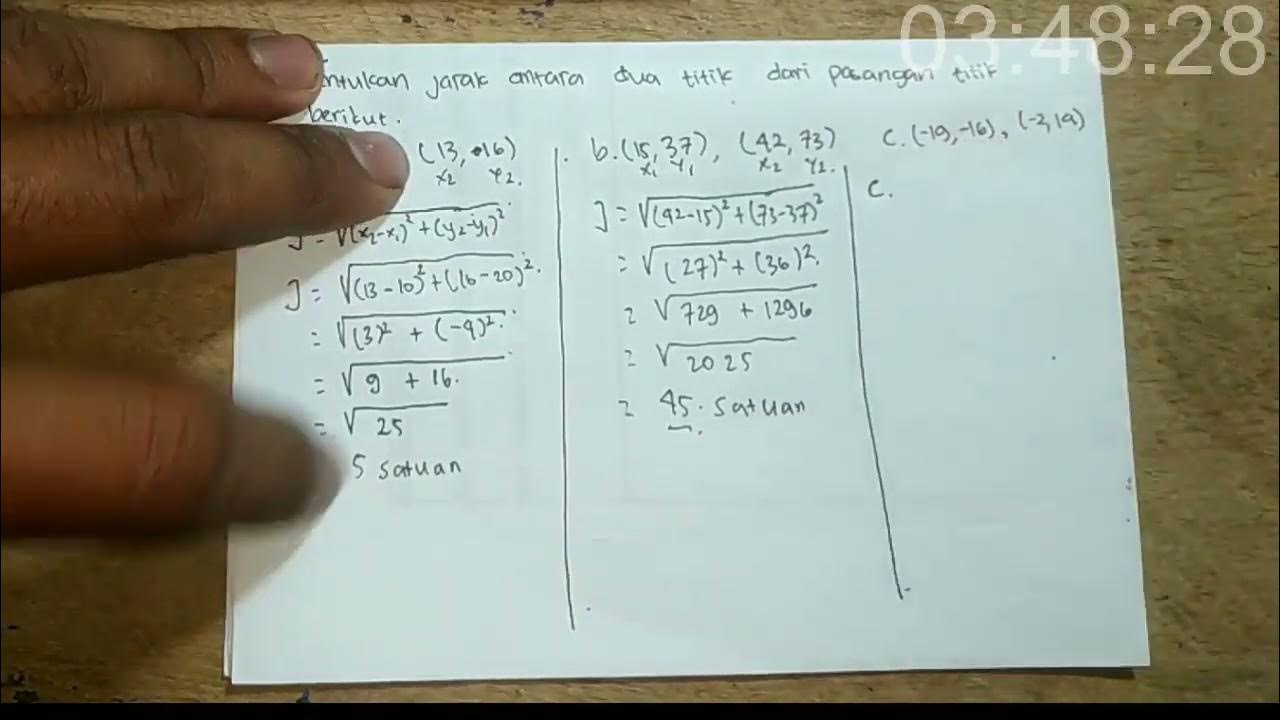 03:48:28
ntukan jarak antara dua titik dari pasangan titik
berikut.
(13, 16)
x2 y2.
J = √(x2-x1)²+(y2-y1)²
J = √(13-10)²+(16-20)².
= √(3)² + (-4)².
= √9 + 16.
= √25
5 satuan
b. (15, 37), (42, 73)
x1 y1 x2 y2.
J = √(42-15)²+(73-37)²
= √(27)² + (36)².
= √729 + 1296
= √2025
= 45. satuan
c. (-19, -16), (-2, 19)
C.